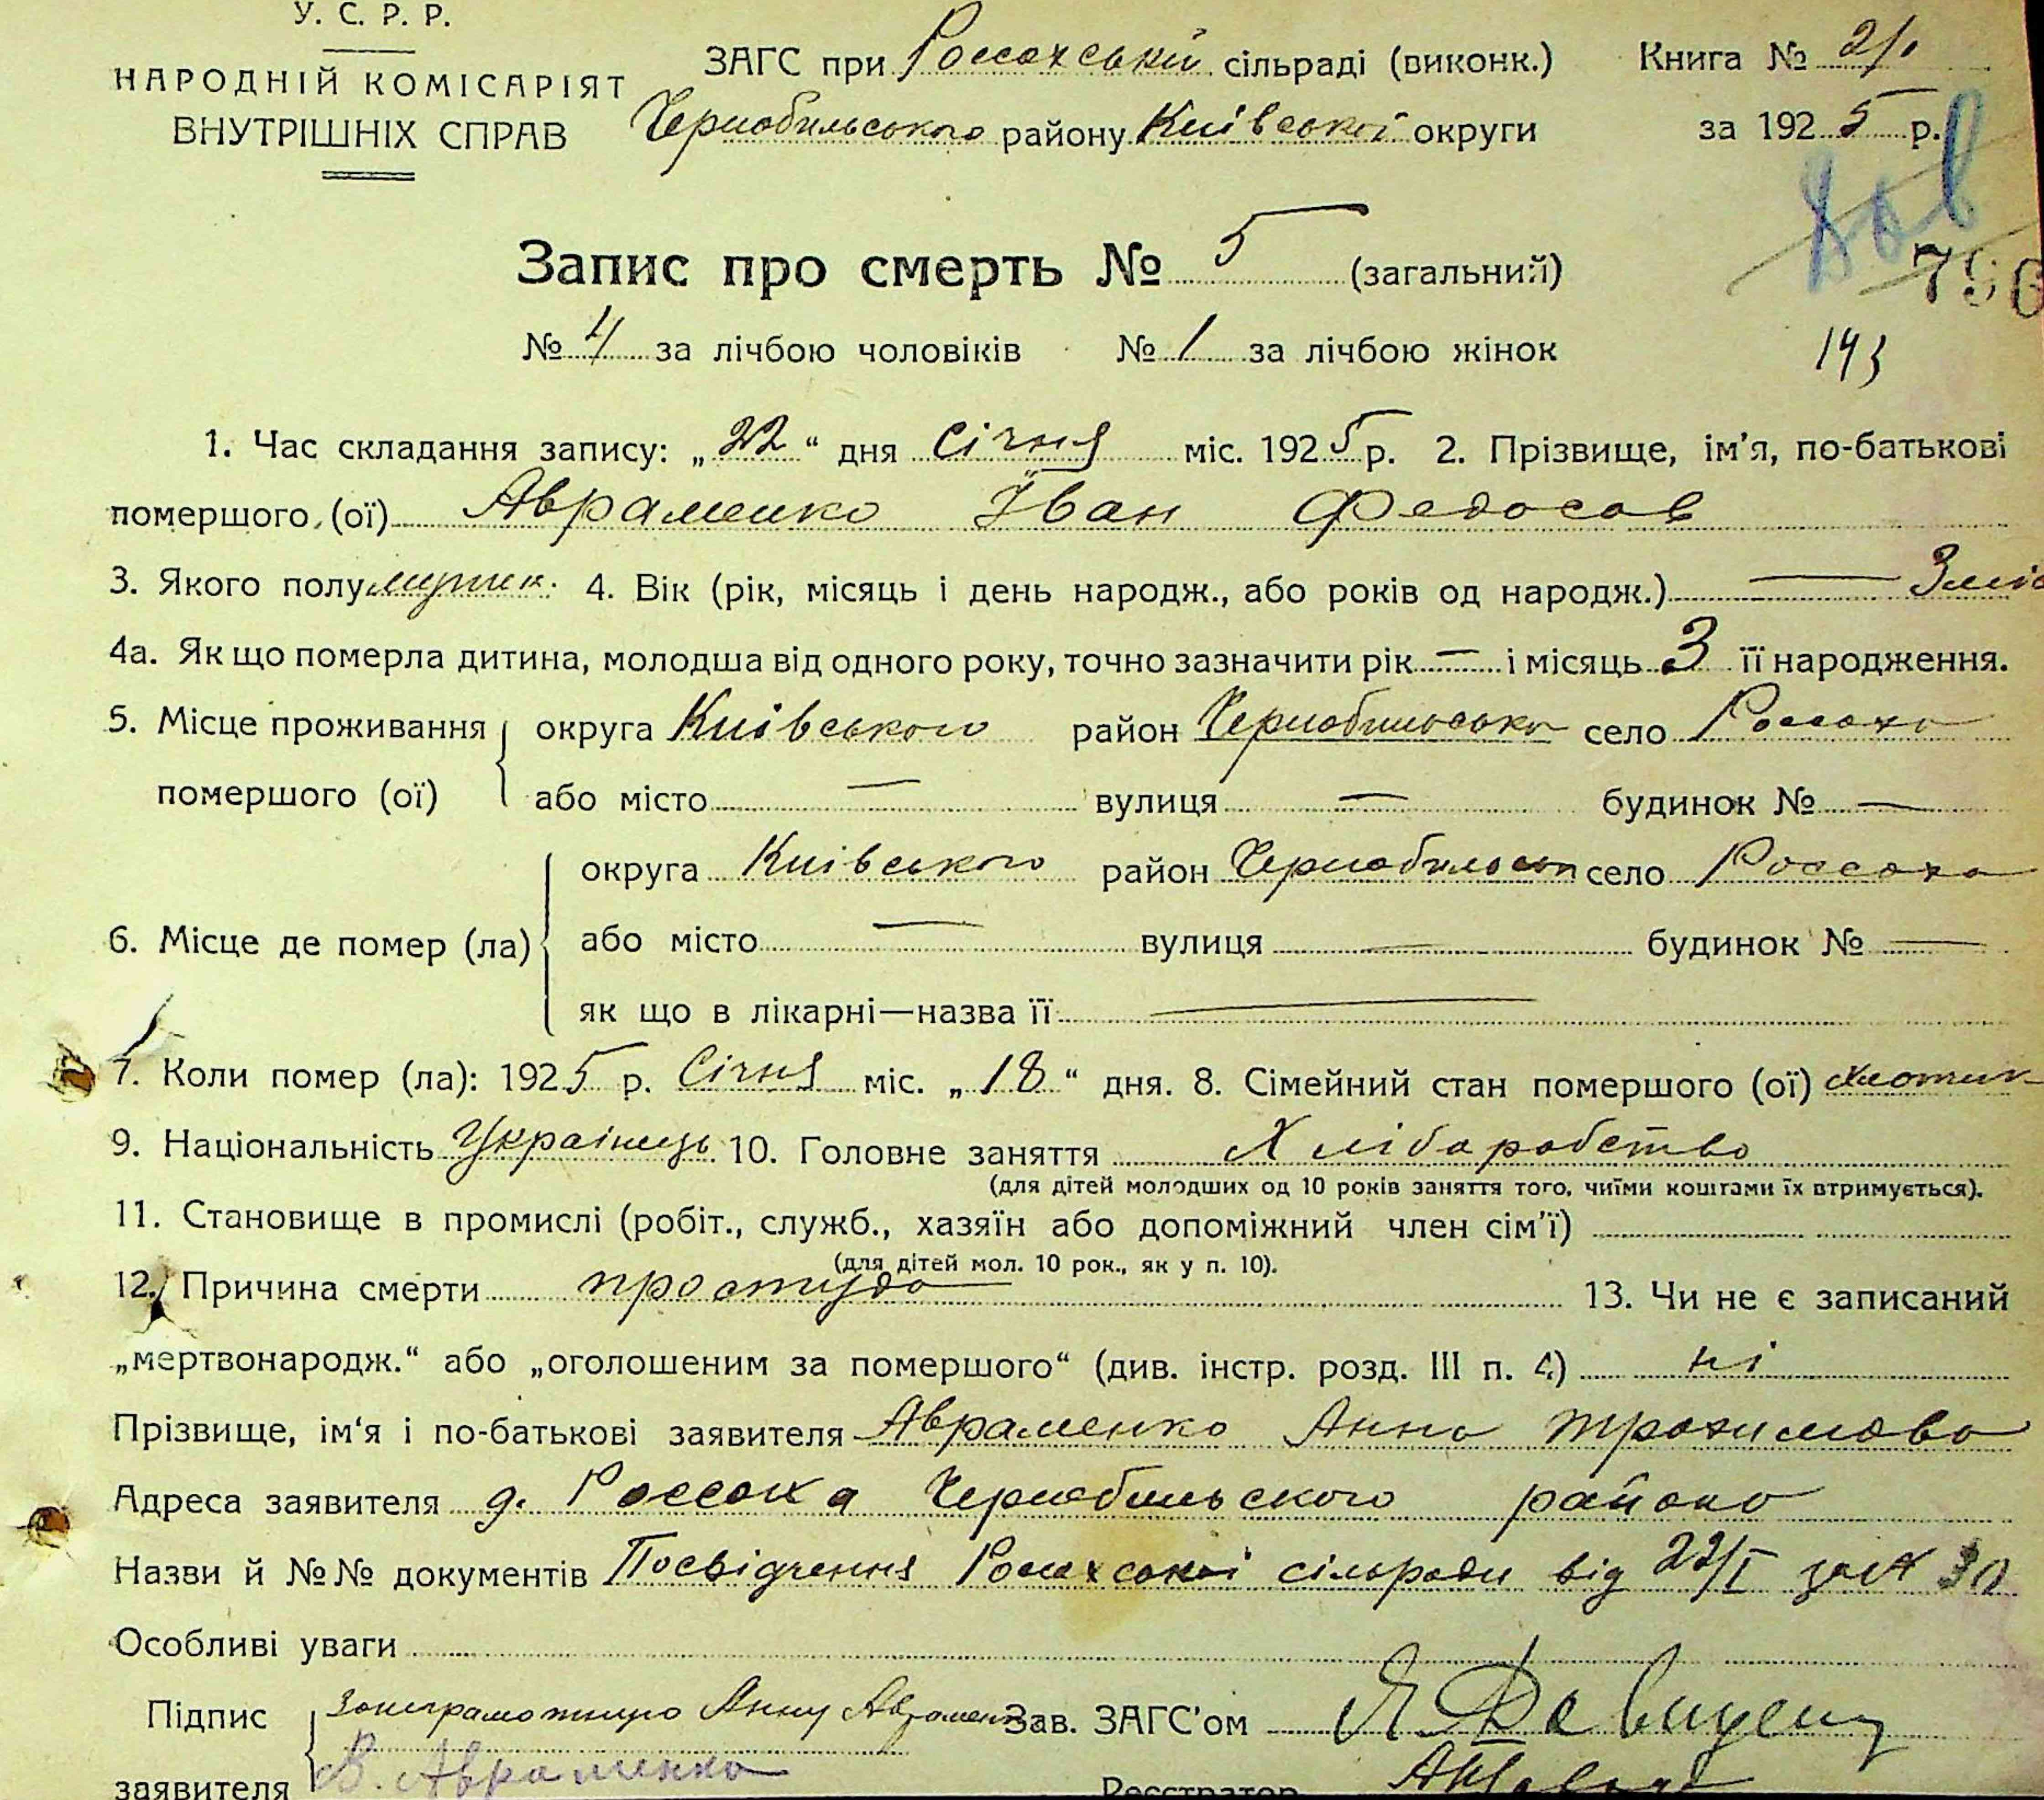 У. С. Р. Р.
НАРОДНІЙ КОМІСАРІЯТ
ВНУТРІШНІХ СПРАВ
ЗАГС при Россохській сільраді (виконк.)
Чернобильського району Київської округи
Книга № 2/1
за 1925 р.
Запис про смерть № 5 (загальний)
№ 4 за лічбою чоловіків № 1 за лічбою жінок
143
1. Час складання запису: „22“ дня Січня міс. 1925 р. 2. Прізвище, ім’я, по-батькові
помершого (ої) Авраменко Іван Федосов
3. Якого полу мужик. 4. Вік (рік, місяць і день народж., або років од народж.) — 3 міс
4а. Як що померла дитина, молодша від одного року, точно зазначити рік — і місяць 3 її народження.
5. Місце проживання помершого (ої) округа Київського район Чернобильсько село Россоха
або місто — вулиця — будинок № —
6. Місце де помер (ла) округа Київського район Чернобильськ село Россоха
або місто — вулиця — будинок № —
як що в лікарні—назва її —
7. Коли помер (ла): 1925 р. Січня міс. „18“ дня. 8. Сімейний стан помершого (ої)
9. Національність Українець 10. Головне заняття Хлібаробство
(для дітей молодших од 10 років заняття того, чиїми коштами їх втримується).
11. Становище в промислі (робіт., служб., хазяїн або допоміжний член сім’ї)
(для дітей мол. 10 рок., як у п. 10).
12. Причина смерти простуда 13. Чи не є записаний
„мертвонародж.“ або „оголошеним за помершого“ (див. інстр. розд. III п. 4) ні
Прізвище, ім‘я і по-батькові заявителя Авраменко Анна Трохимова
Адреса заявителя д. Россоха Чернобильського району
Назви й №№ документів Посвідчення Россохської сільради від 22/I за № 30
Особливі уваги
Підпис заявителя За неграмотную Анну Авраменко
В. Авраменко
Зав. ЗАГС’ом Я Давидец
Реєстратор